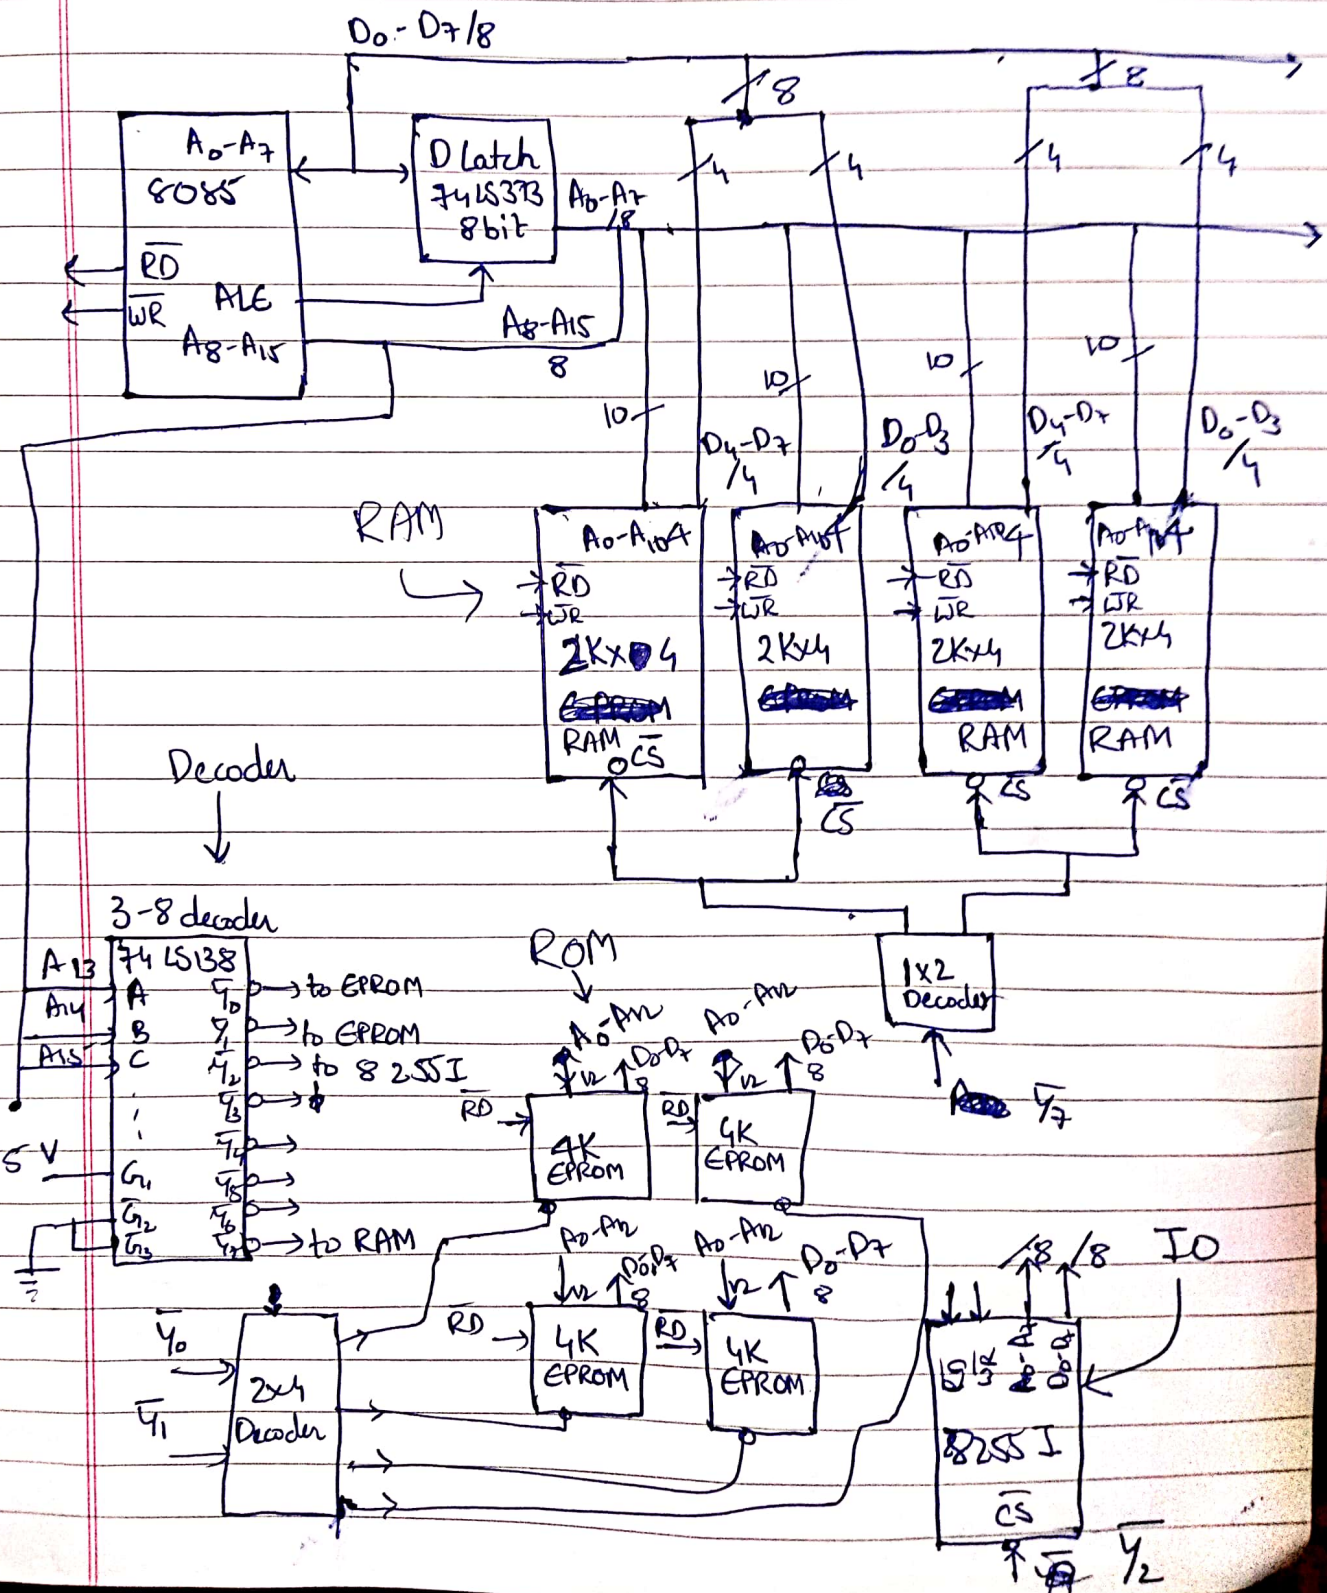 D0-D7/8
8
8
A0-A7
8085
R̅D̅
W̅R̅
ALE
A8-A15
D Latch
74LS373
8bit
A0-A7
/8
A8-A15
8
4
4
4
4
10
10
10
10
D4-D7
/4
D0-D3
/4
D4-D7
/4
D0-D3
/4
RAM
A0-A10 4
R̅D̅
W̅R̅
2Kx4
RAM
C̅S̅
A0-A10 4
R̅D̅
W̅R̅
2Kx4
C̅S̅
A0-A10 4
R̅D̅
W̅R̅
2Kx4
RAM
C̅S̅
A0-A10 4
R̅D̅
W̅R̅
2Kx4
RAM
C̅S̅
Decoder
3-8 decoder
74LS138
A13
A14
A15
A
B
C
5V
G1
G̅2
G̅3
Y̅0 to EPROM
Y̅1 to EPROM
Y̅2 to 8255I
Y̅3
Y̅4
Y̅5
Y̅6
Y̅7 to RAM
1x2
Decoder
Y̅7
ROM
A0-A12
12
D0-D7
8
R̅D̅
4K
EPROM
A0-A12
12
D0-D7
8
R̅D̅
4K
EPROM
A0-A12
12
D0-D7
8
R̅D̅
4K
EPROM
A0-A12
12
D0-D7
8
R̅D̅
4K
EPROM
Y̅0
Y̅1
2x4
Decoder
IO
/8 /8
R̅D̅
W̅R̅
A0-A7
D0-D7
8255I
C̅S̅
Y̅2